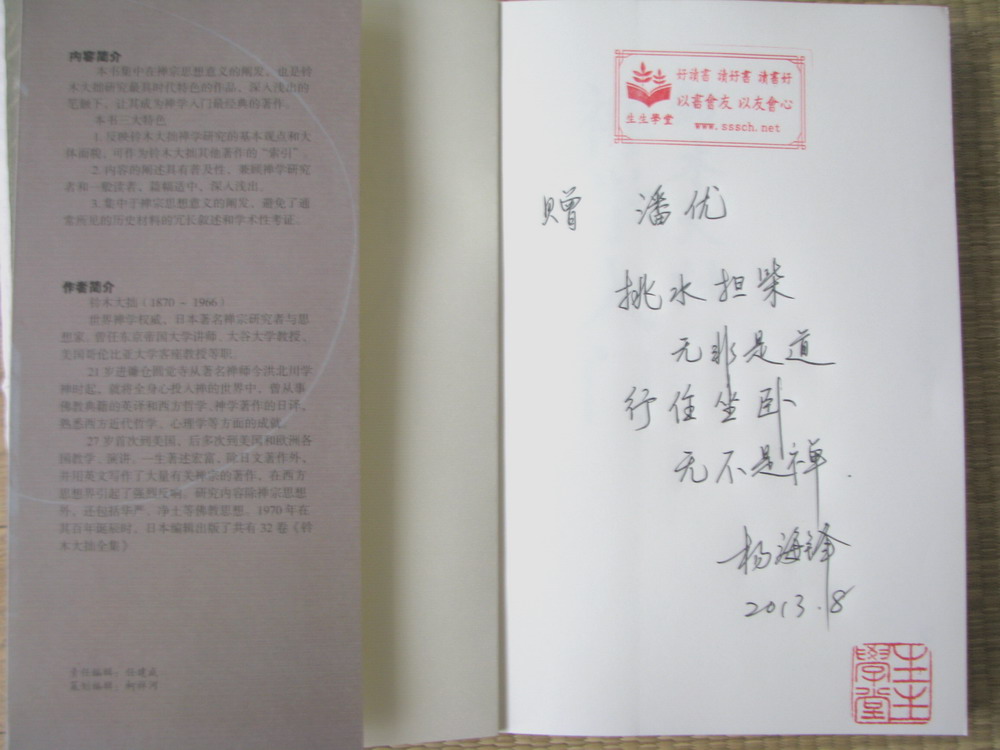 内容简介
本书集中在禅宗思想意义的阐发，也是铃
木大拙研究最具时代特色的作品，深入浅出的
笔触下，让其成为禅学入门最经典的著作。
本书三大特色
1. 反映铃木大拙禅学研究的基本观点和大
体面貌，可作为铃木大拙其他著作的“索引”。
2. 内容的阐述具有普及性，兼顾禅学研究
者和一般读者，篇幅适中，深入浅出。
3. 集中于禅宗思想意义的阐发，避免了通
常所见的历史材料的冗长叙述和学术性考证。
作者简介
铃木大拙（1870 - 1966）
世界禅学权威，日本著名禅宗研究者与思
想家。曾任东京帝国大学讲师、大谷大学教授、
美国哥伦比亚大学客座教授等职。
21岁进镰仓圆觉寺从著名禅师今洪北川学
禅时起，就将全身心投入禅的世界中，曾从事
佛教典籍的英译和西方哲学、神学著作的日译，
熟悉西方近代哲学、心理学等方面的成就。
27岁首次到美国，后多次到美国和欧洲各
国教学、演讲。一生著述宏富，除日文著作外，
并用英文写作了大量有关禅宗的著作，在西方
思想界引起了强烈反响。研究内容除禅宗思想
外，还包括华严、净土等佛教思想。1970年在
其百年诞辰时，日本编辑出版了共有32卷《铃
木大拙全集》
责任编辑：
策划编辑：
好讀書 讀好書 讀書好
以書會友 以友會心
生生學堂
www.sssch.net
赠 潘优
挑水担柴
无非是道
行住坐卧
无不是禅.
杨海锋
2013.8
生生學堂